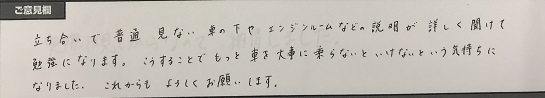 ご意見欄
立ち合いで普通見ない車の下やエンジンルームなどの説明が詳しく聞けて
勉強になります。こうすることでもっと車を大事に乗らないといけないという気持ちに
なりました。これからもよろしくお願いします。